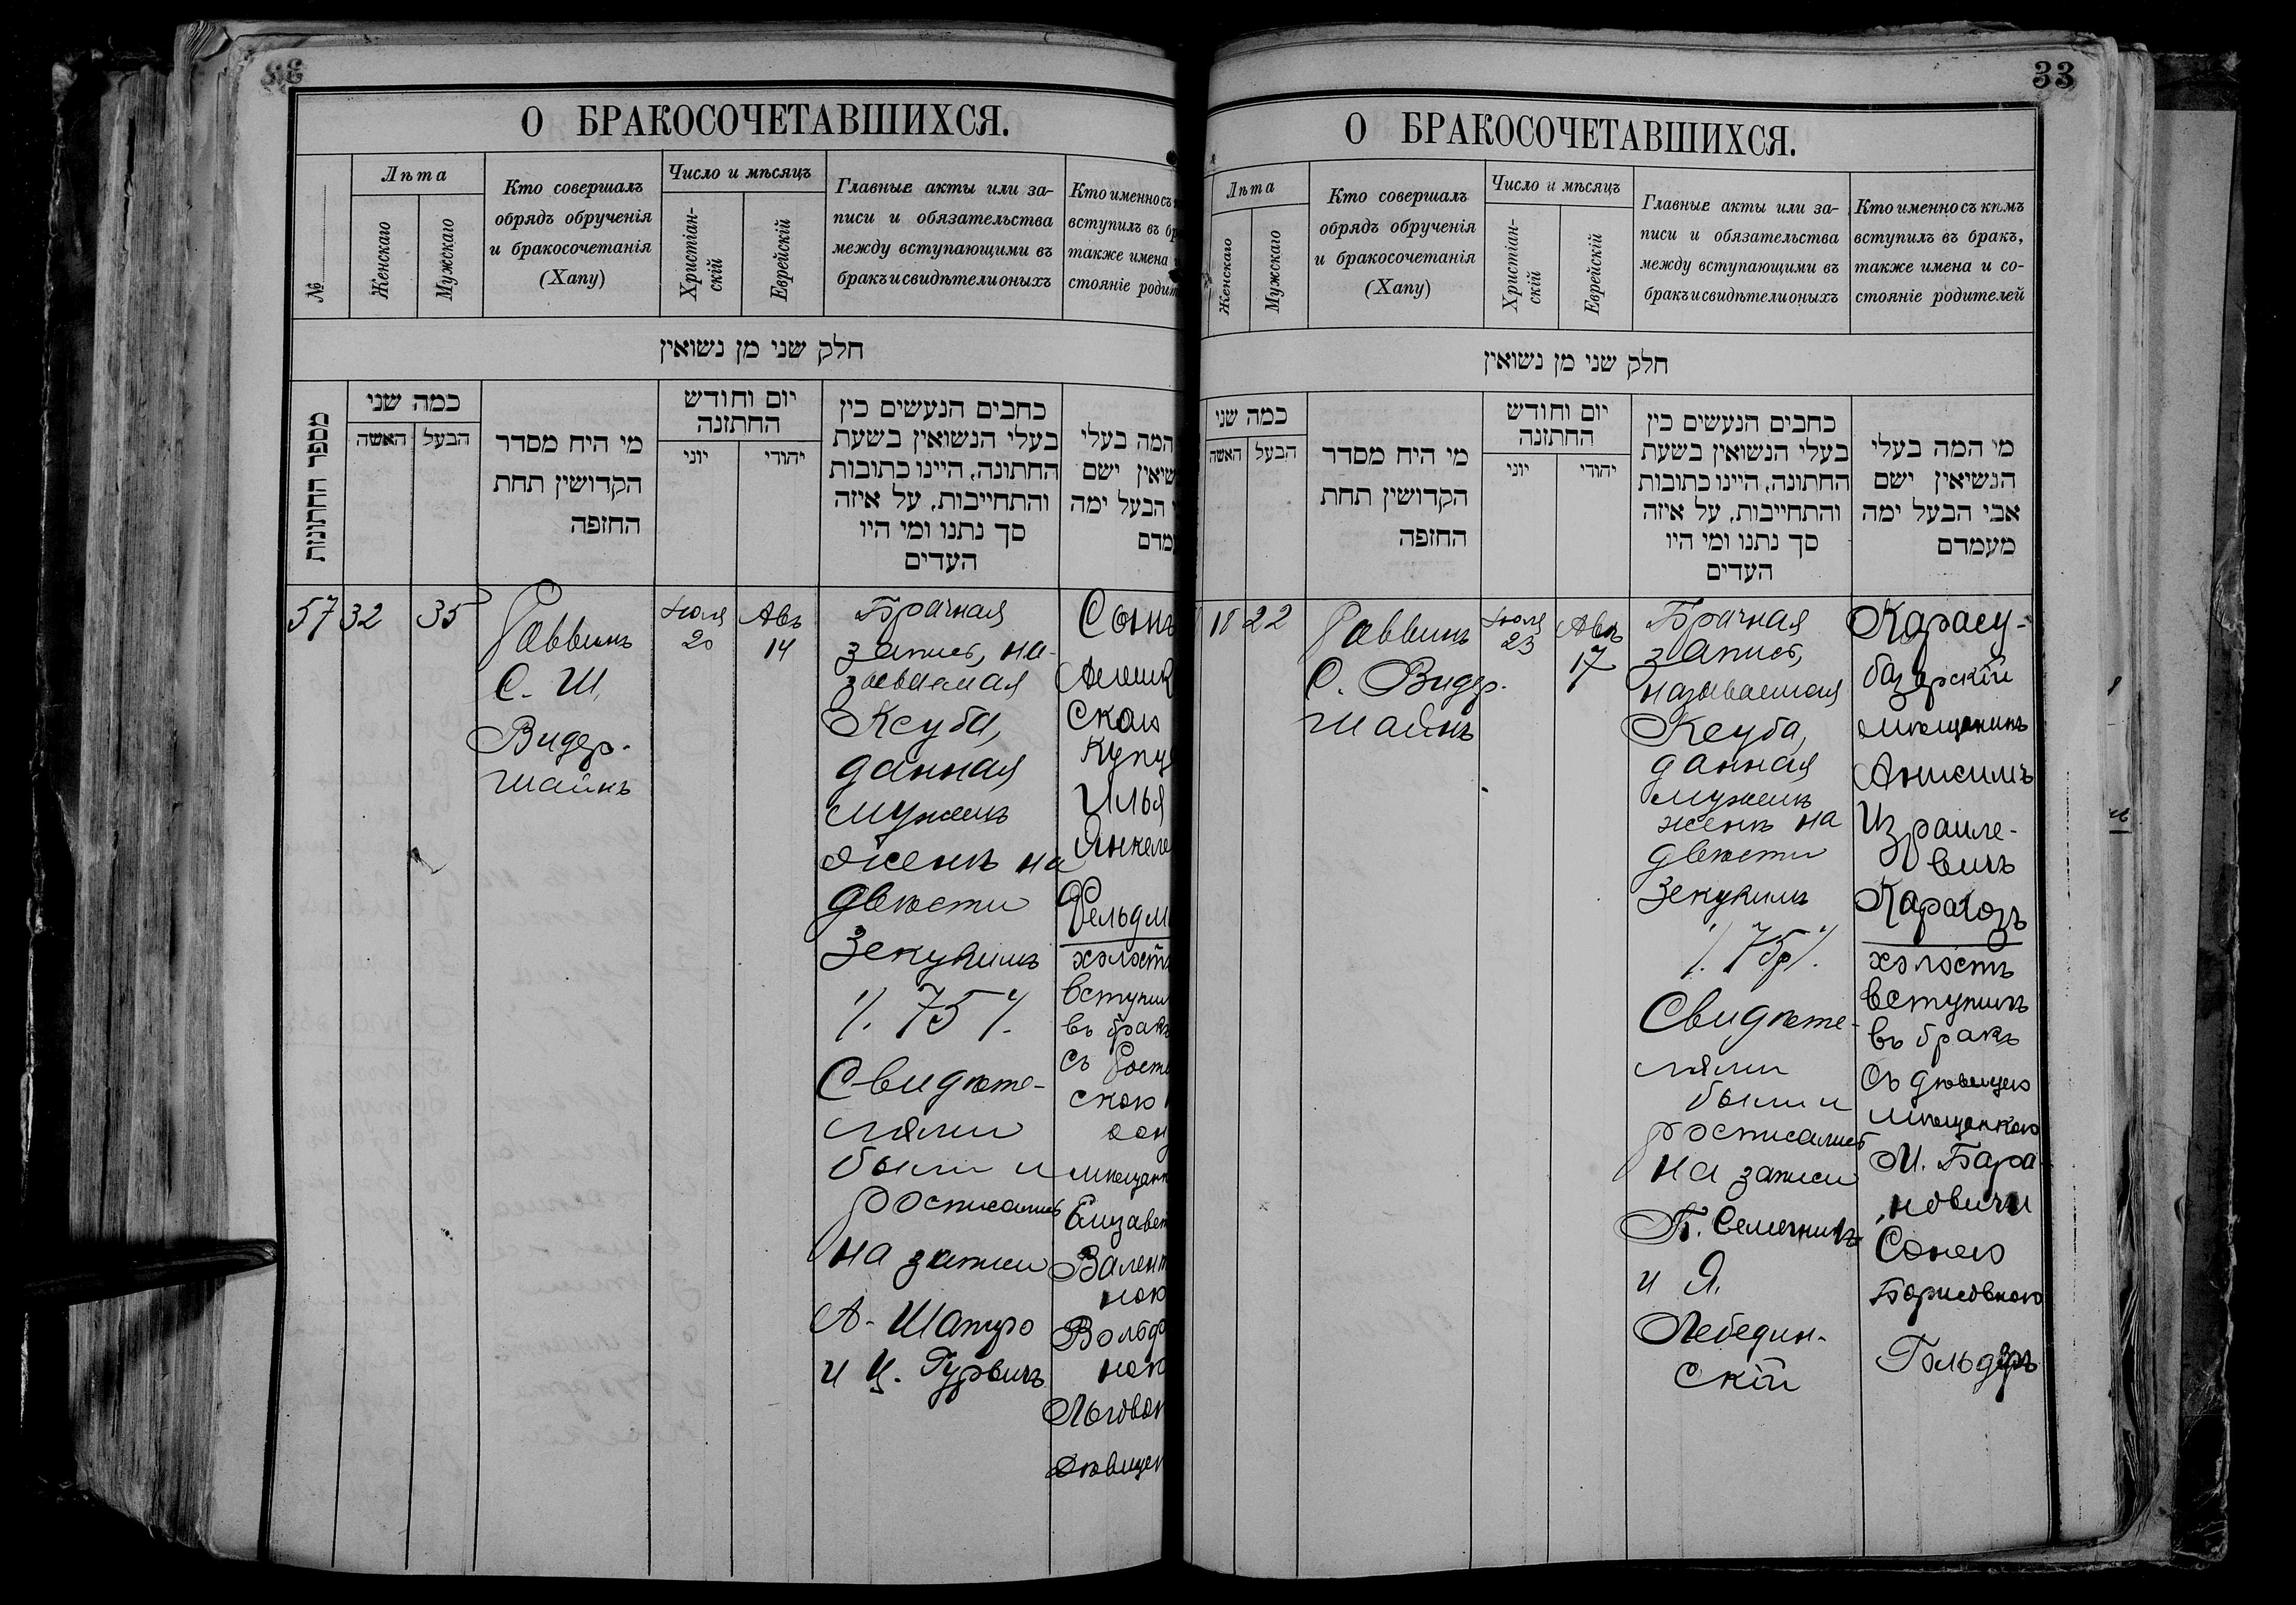 33
О БРАКОСОЧЕТАВШИХСЯ.
№
Лѣта
Женскаго
Мужскаго
Кто совершалъ
обрядъ обрученія
и бракосочетанія
(Хапу)
Число и мѣсяцъ
Христіан-
скій
Еврейскій
Главные акты или за-
писи и обязательства
между вступающими въ
бракъ и свидѣтели оныхъ
Кто именно съ
вступилъ въ бр
также имена
стояніе родит
חלק שני מן נשואין
מספר החתונות
כמה שני
האשה
הבעל
מי היח מסדר
הקדושין תחת
החזפה
יום וחודש
החתזנה
יוני
יהודי
כחבים הנעשים כין
בעלי הנשואין בשעת
החתונה, היינו כתובות
והתחייבות, על איזה
סך נתנו ומי היו
העדים
המה בעלי
שיאין ישם
הבעל ימה
מדם
57
32
35
Раввинъ
С. Ш.
Видер-
шайнъ
Іюля
20
Авъ
14
Брачная
запись, на-
зываемая
Ксуба,
данная
мужемъ
женѣ на
двѣсти
Зекукимъ
/. 75 /.
Свидѣте-
лями
были и
росписались
на записи
А. Шапиро
и Ц. Гурвичъ
Сынъ
скаго
купц
Илья
Янкеле
Фельдм
холостъ
вступил
въ бракъ
съ Росто
скою
дон
мѣщанк
Елизавет
Валент
ною
Вольфо
ною
дѣвицею
О БРАКОСОЧЕТАВШИХСЯ.
Лѣта
Женскаго
Мужскаго
Кто совершалъ
обрядъ обрученія
и бракосочетанія
(Хапу)
Число и мѣсяцъ
Христіан-
скій
Еврейскій
Главные акты или за-
писи и обязательства
между вступающими въ
бракъ и свидѣтели оныхъ
Кто именно съ кѣмъ
вступилъ въ бракъ,
также имена и со-
стояніе родителей
חלק שני מן נשואין
כמה שני
האשה
הבעל
מי היח מסדר
הקדושין תחת
החזפה
יום וחודש
החתזנה
יוני
יהודי
כחבים הנעשים כין
בעלי הנשואין בשעת
החתונה, היינו כתובות
והתחייבות, על איזה
סך נתנו ומי היו
העדים
מי המה בעלי
הנשיאין ישם
אבי הבעל ימה
מעמדם
18
22
Раввинъ
С. Видер-
шайнъ
Іюля
23
Авъ
17
Брачная
запись,
называемая
Ксуба,
данная
мужемъ
женѣ на
двѣсти
Зекукимъ
/. 75р /.
Свидѣте-
лями
были и
росписались
на записи
П. Семечникъ
и Я.
Лебедин-
скій
Карасу-
базарскій
мѣщанинъ
Анисимъ
Израиле-
вичъ
Карагозъ
холостъ
вступилъ
въ бракъ
съ дѣвицею
мѣщанкою
М. Бара
новичи
Сонею
Борисовною